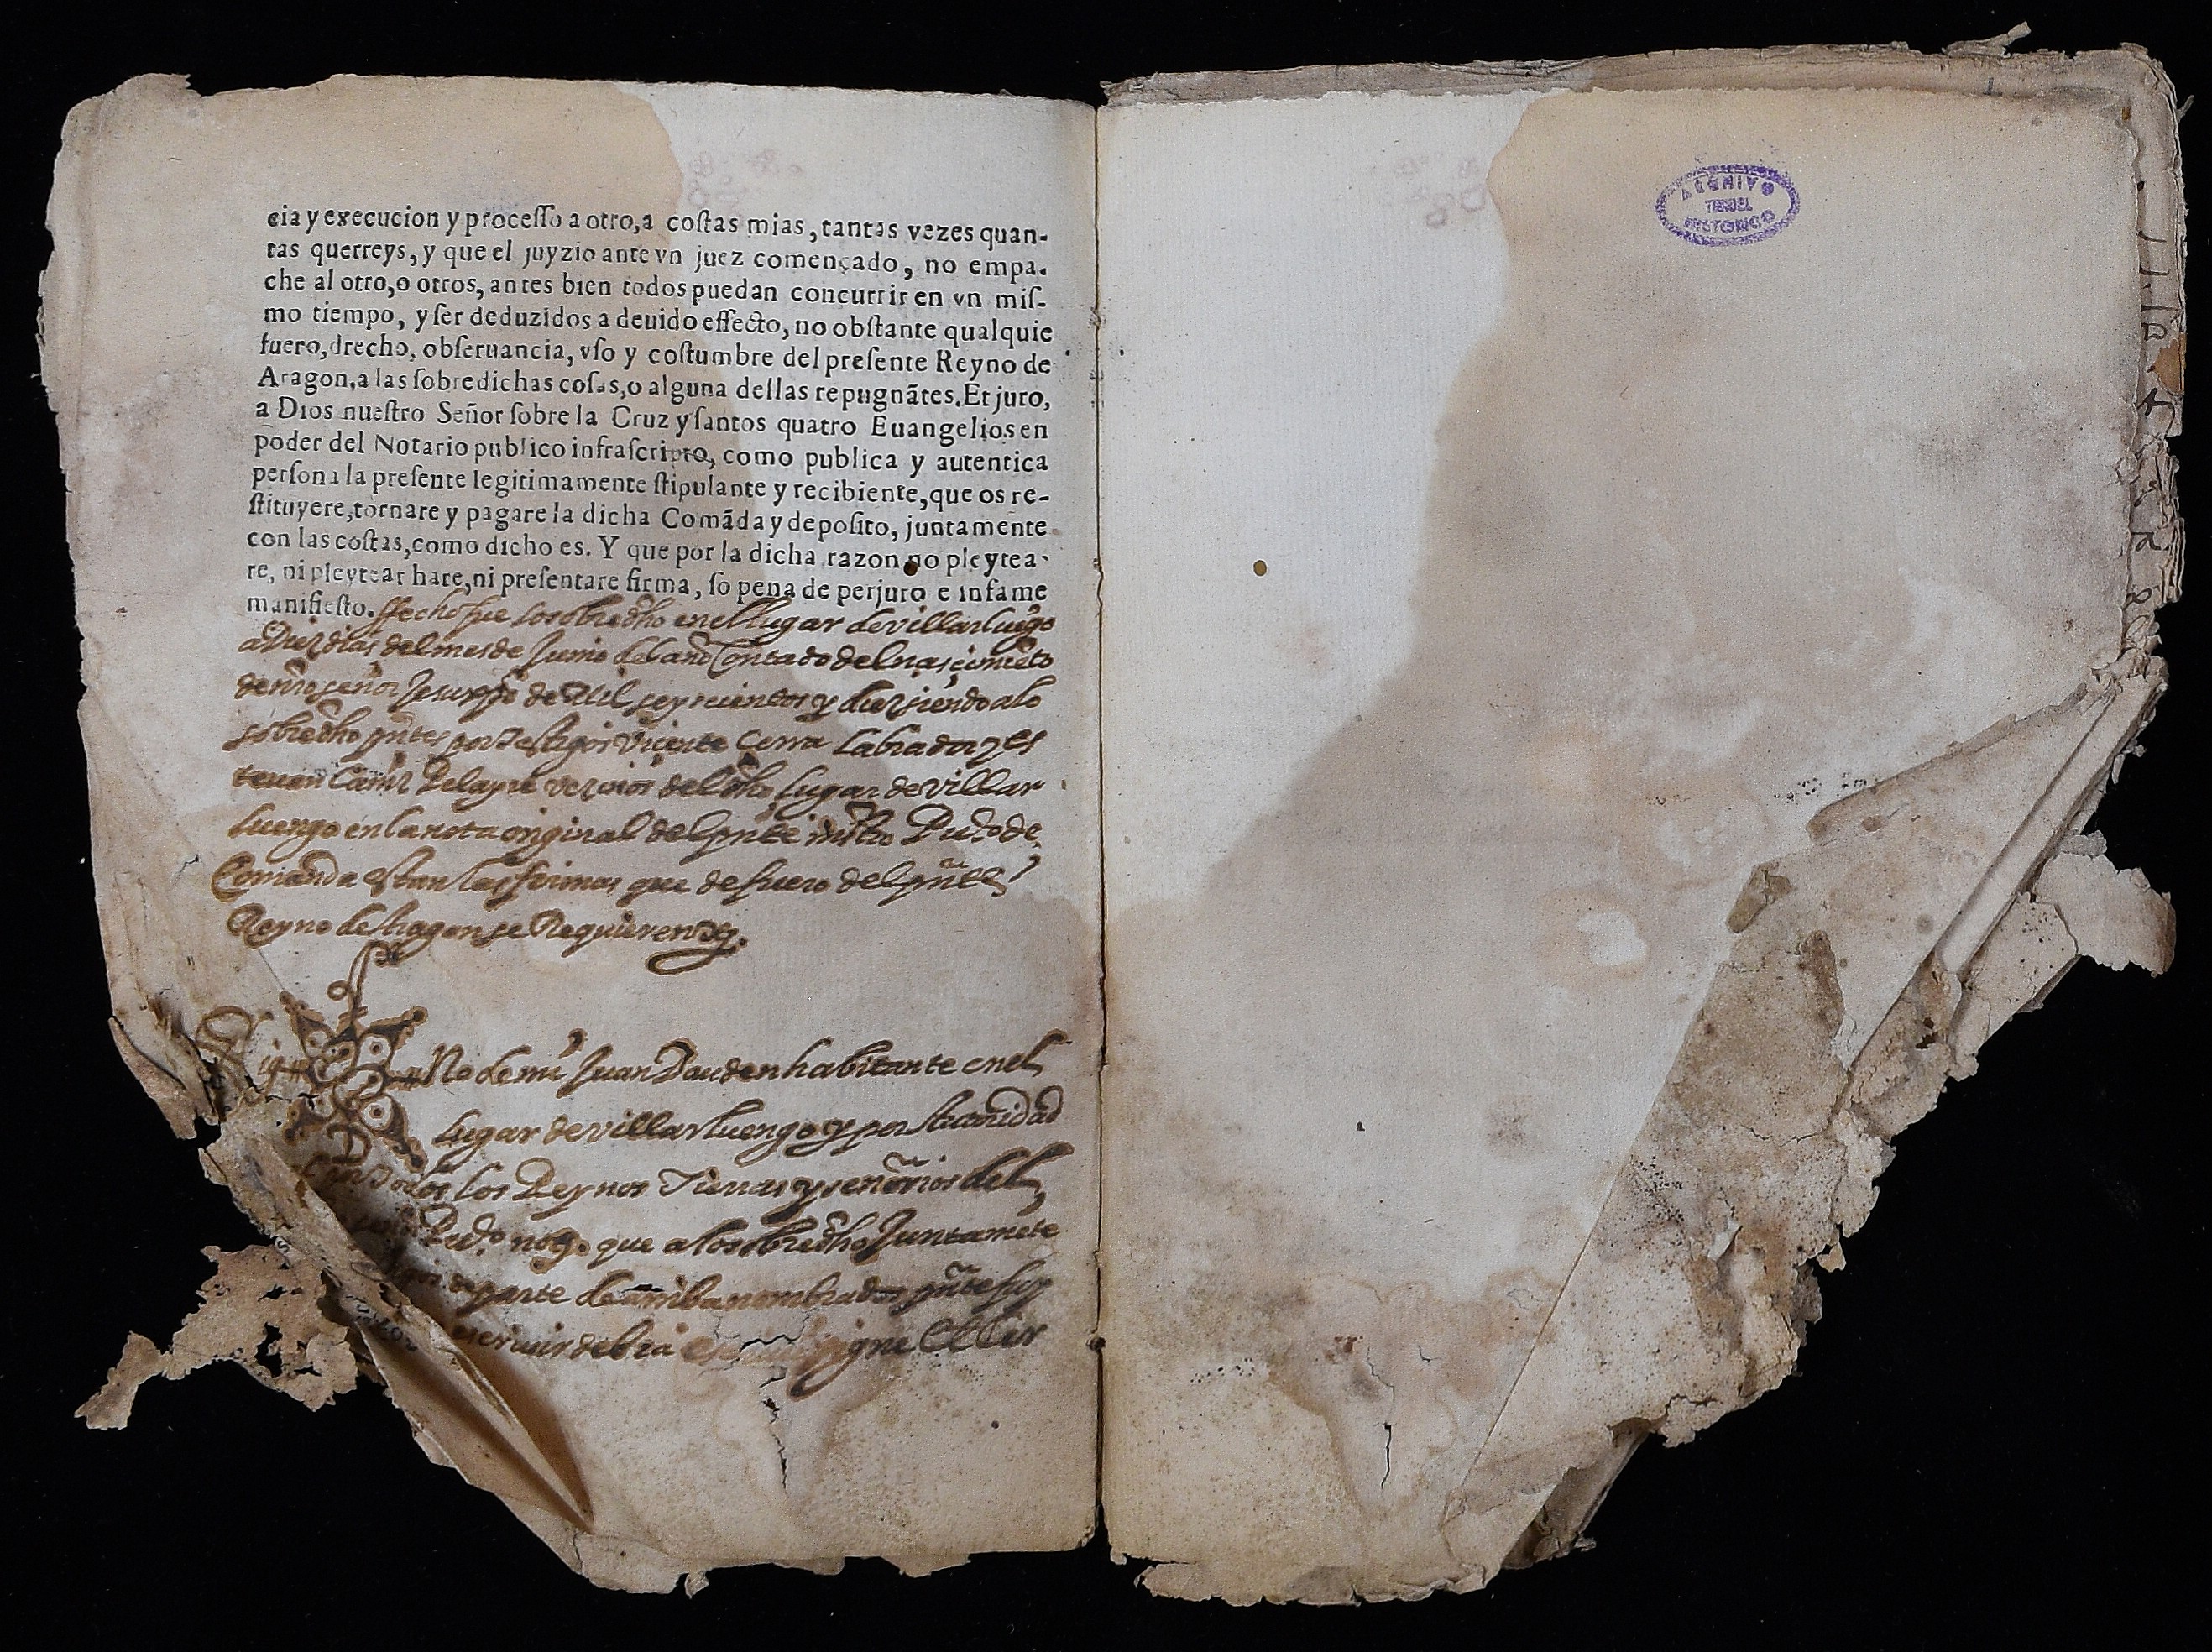 cia y execucion y processo a otro, a costas mias, tantas vezes quan-
tas querreys, y que el juyzio ante vn juez començado, no empa-
che al otro, o otros, antes bien todos puedan concurrir en vn mis-
mo tiempo, y ser deduzidos a deuido effecto, no obstante qualquie
fuero, drecho, obseruancia, vso y costumbre del presente Reyno de
Aragon, a las sobredichas cosas, o alguna dellas repugnãtes. Et juro,
a Dios nuestro Señor sobre la Cruz y santos quatro Euangelios en
poder del Notario publico infrascripto, como publica y autentica
persona la presente legitimamente stipulante y recibiente, que os re-
stituyere, tornare y pagare la dicha Comãda y deposito, juntamente
con las costas, como dicho es. Y que por la dicha razon no pleytea-
re, ni pleytear hare, ni presentare firma, so pena de perjuro e infame
manifiesto. ffecho fue lo sobredho en el lugar de villarluẽgo
a Diez dias del mes de Junio del año Contado del nasçimiẽto
de nr̃o señor Jesuxp̃o de Mil seyscientos y diez siendo a lo
sobredho pñtes por Testigos Viçente Cerra Labrador y es
teuan Pelayre vezinos del dho lugar de villar
luengo en la nota original del pñte instro Puco de
Comanda estan las firmas que de fuero del pñte
Reyno de Aragon se Requieren
Sig No de mi Juan Dauden habitante en el
lugar de villarluengo y por Auctoridad
por Todos los Reynos Tierras y señorios del
Puco noto. que a lo sobredho Juntamẽte
de parte de arriba nombrados pñte fuy
escriuir debra signe Et Cer
ARCHIVO
TERUEL
HISTORICO